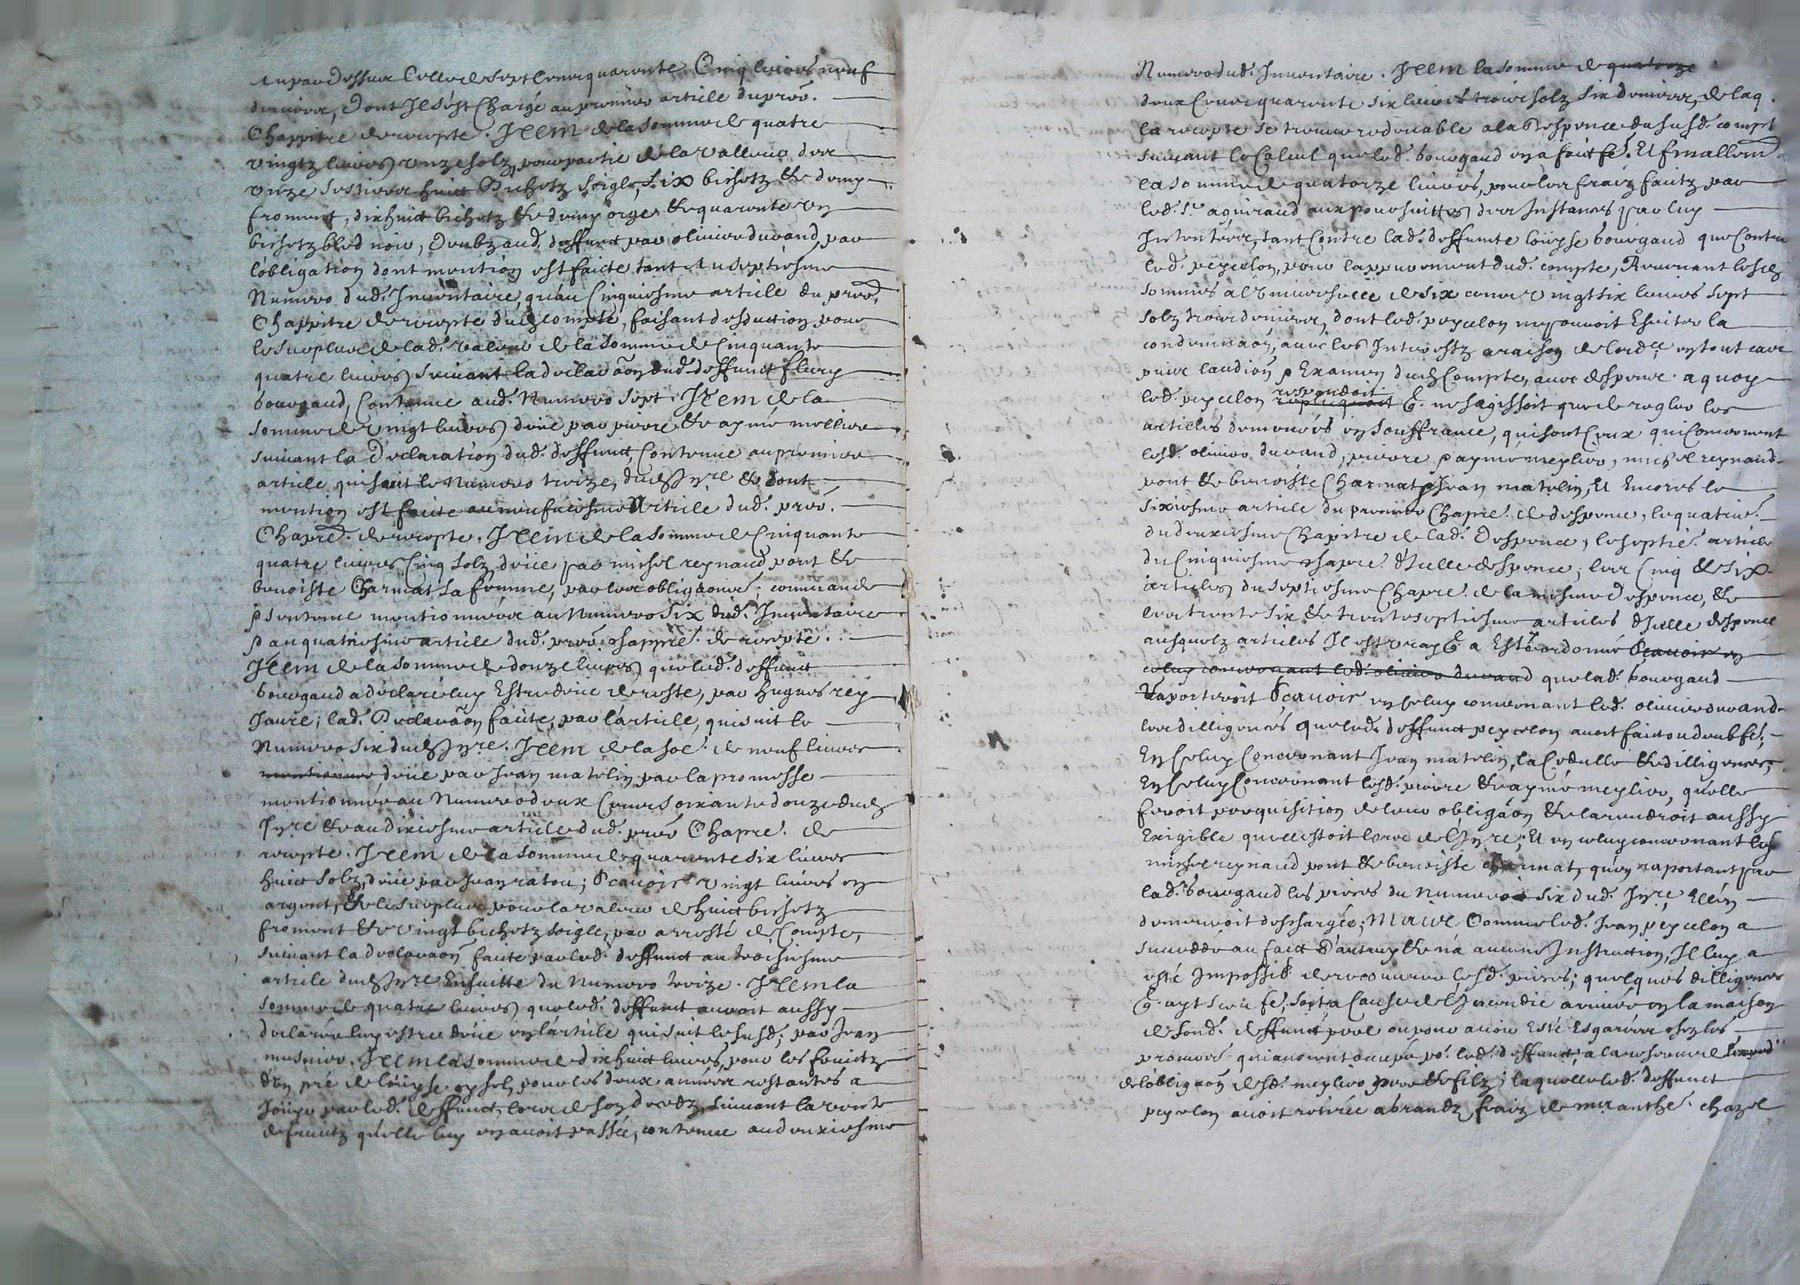 au par dessus Celle de sept Cenz quarente Cinq livres neuf
deniers, dont Il s'est Chargé au premier article du prés.
Chappitre de recepte. Item de la somme de quatre
vingtz livres unze solz, pour partie de la valleur des
unze sestiers huict Bichetz seigle, six bichetz & demy
froment, dixhuict bichetz & demy orge & quarente un
bichetz bled noir, deubz aud. deffunct par olivier durand, par
l'obligation dont mention est faicte tant au septiesme
Numero dud. Inventaire, qu'au Cinquiesme article du prés.
Chappitre de recepte dud. compte, faisant desduction pour
le surplus de lad. valeur de la somme de Cinquante
quatre livres, suivant la declaraõn dud. deffunct fleury
bourgaud, Contenue aud. Numero sept. Item de la
somme de vingt livres, deüe par pierre & aymé mellier
suivant la Declaration dud. deffunct Contenue au premier
article qui suit le Numero treize, dud. Inre & dont
mention est faicte au neufviesme Article dud. prés.
Chapre. de recepte. Item de la somme de Cinquante
quatre livres Cinq solz, deüe par michel reynaud pont &
benoiste Charmat sa femme, par leur obligaõn commande
& sentence mentionnées au Numero six dud. Inventaire
& au quatriesme article dud. prés. chappre. de recepte.
Item de la somme de douze livres, que led. deffunct
bourgaud a declaré luy Estre deüe de reste, par hugues rey
Jaure; lad. Declaraõn faicte, par l'article, qui suit le
Numero six dud. Inre. Item de la soe. de neuf livres
mentionnee deüe par Jean matelin, par la promesse
mentionnée au Numero deux Cenz soixante douze dud.
Inre & au dixiesme article dud. prés Chapre. de
recepte. Item de la somme de quarente six livres
huict solz, deüe par Jean ratou; Scavoir vingt livres en
argent, & le surplus pour la valeur de huict bichetz
froment & vingt bichetz seigle, par arresté de Compte,
suivant la declaraõn faicte par led. deffunct au troisiesme
article dud. Inre Ensuitte du Numero treize. Item la
somme de quatre livres que led. deffunct auroit aussy
declaré luy estre deüe en l'article qui suit le susd; par Jean
musnier. Item la somme de dixhuict livres, pour les fruictz
d'un pré de Loüyse oysel, pour les deux années restantes a
Joüyr par led. deffunct, lors de son decedz, suivant la vente
de fruictz qu'elle luy en avoit passée, contenue au deuxiesme
Numero dud. Inventaire. Item la somme de quatorze
deux Cenz quarente six livres treize solz six deniers, de laq.
la recepte se treuve redevable a la Despence du susd. compte
suivant le Calcul que led. bourgaud en a faict fe. Et finallemt
la somme de quatorze livres, pour les fraiz faictz par
led. Sr. aguiraud aux poursuittes des Instances par luy
Intentées, tant Contre lad. deffuncte loüyse bourgaud que Contre
led. peycelon, pour l'appurement dud. compte, Revenant lesd.
sommes a l'Universelle de six cenz vingt six livres sept
solz trois deniers, dont led. peycelon ne pouvoit Eviter la
condemnaõn, avec les Interestz a raison de l'ord.ce en tout cas
puis l'audiõn & Examen dud. Compte, avec despens. a quoy
led. peycelon respondoit repliquoit q. ne s'agissoit que de regler les
articles demeurés en souffrance, qui sont Ceux qui Concernent
lesd. olivier durand, pierre & aymé meylier, michel reynaud
pont & benoiste Charmat, Jean matelin, Et Encores le
sixiesme article du premier Chapre. de despence, le quatrie.
du deuxiesme Chapitre de lad. Despence, le septie. article
du Cinquiesme chapre. d'Icelle despence, les Cinq & six
articles du septiesme Chapre. de la mesme Despence, &
les trente six, & trente septiesme articles d'Icelle despence
ausquelz articles Il est vray q. a Esté ordonné Scavoir en
celuy concernant led. olivier durand que lad. bourgaud
Raporteroit Scavoir en celuy concernant led. olivier durand
les dilligences que led. deffunct peycelon avoit faict ou deub fe;
En Celuy Concernant Jean matelin, la Cedulle & dilligences;
En Celuy Concernant lesd. pierre & aymé meylier, qu'elle
feroit perquisition de leur obligaõn & la rendroit aussy
Exigible qu'elle estoit lors de l'Inre; Et en celuy concernant led.
michel reynaud pont & benoiste charmat, qu'en raportant par
lad. bourgaud les pieces du Numero six dud. Inre, Elle
demeuroit deschargée; Mais Comme led. Jean peycelon a
succedé au faict d'autruy & n'a aucune Instruction, Il luy a
esté Impossib. de recouvrer lesd. pieces; quelques dilligences
q. ayt sceu fe, soit a Cause de l'Incendie arrivée en la maison
de fond. deffunct pere ou pour avoir Esté Esgarées chez les
procurs. qui avoient occupé po. led. deffunct, a la reserve de
de l'obligaõn desd. meylier, pere & filz; laquelle led. deffunct
peycelon avoit retirée a grandz fraiz de me anthe. chazel